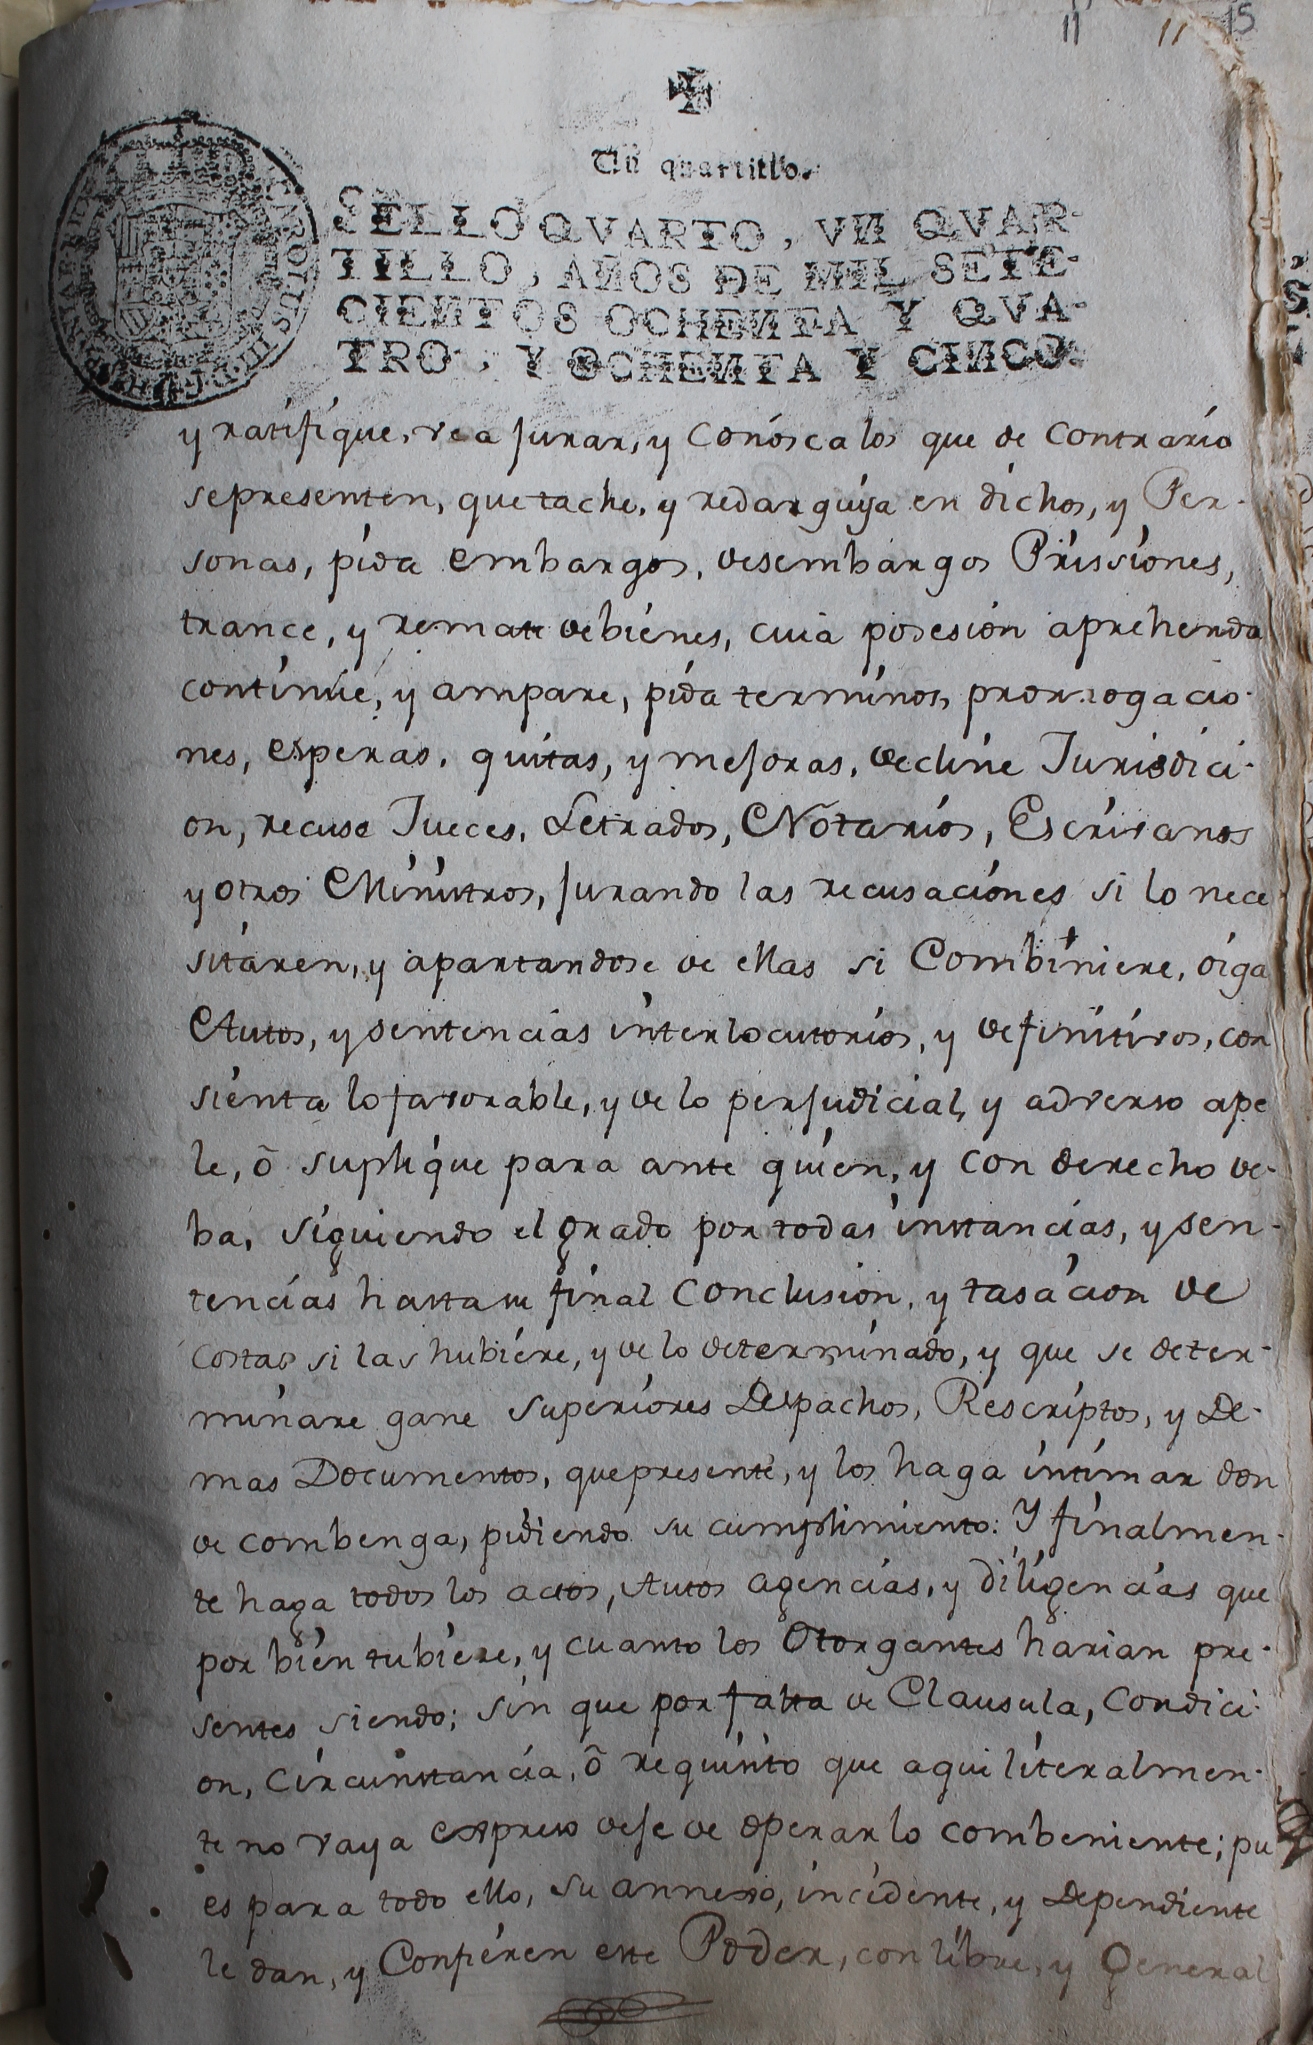 11 11 15
Un quartillo.
SELLO QVARTO, VN QVAR-
TILLO, AÑOS DE MIL SETE-
CIENTOS OCHENTA Y QVA-
TRO, Y OCHENTA Y CINCO.
y ratifique, vea jurar, y conósca los que de contrario
sepresenten, que tache, y redarguya en dichos, y Per-
sonas, pida embargos, desembargos Prissiones,
trance, y remate debienes, cuia posesion aprehenda
continúe, y ampare, pida terminos, prorrogacio-
nes, esperas, quitas, y mejoras, decline Jurisdici-
on, recuse Jueces, Letrados, Notarios, Escrivanos
y otros Ministros, jurando las recusaciones si lo nece
sitaren, y apartandose de ellas si Combiniere, oiga
Autos, y sentencias interlocutorios, y definitivos, con
sienta lo favorable, y de lo perjudicial, y adverso ape
le, ô suplique para ante quien, y con derecho de-
ba, siguiendo el grado por todas instancias, y sen-
tencias hasta su final conclusion, y tasacion de
costas si las hubiere, y de lo determinado, y que se deter-
minare gane superiores Despachos, Rescriptos, y De-
mas Documentos, que presente, y los haga intimar don
de combenga, pidiendo su cumplimiento: Y finalmen-
te haga todos los actos, Autos agencias, y diligencias que
por bien tubiere, y cuanto los Otorgantes harian pre-
sentes siendo; sin que por falta de Clausula, Condici-
on, Circunstancia, ô requisito que aqui literalmen-
te no vaya expreso deje de operar lo combeniente; pu
es para todo ello, su annexo, incidente, y Dependiente
le dan, y Confieren este Poder, con libre, y General